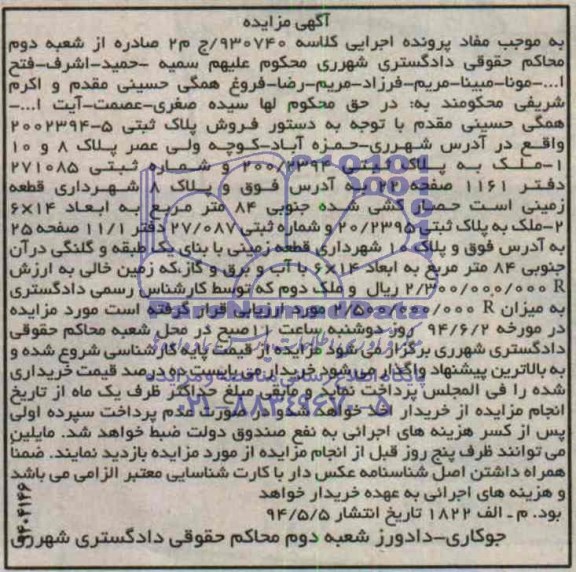 آگهی مزایده
به موجب مفاد پرونده اجرایی کلاسه ۹۳۰۷۴۰/ج م۲ صادره از شعبه دوم
محاکم حقوقی دادگستری شهرری محکوم علیهم سمیه -حمید-اشرف-فتح
ا...-مونا-مبینا-مریم-فرزاد-مریم-رضا-فروغ همگی حسینی مقدم و اکرم
شریفی محکومند به: در حق محکوم لها سیده صغری-عصمت-آیت ا...-
همگی حسینی مقدم با توجه به دستور فروش پلاک ثبتی ۵-۲۰۰۲۳۹۴
واقع در آدرس شهرری-حمزه آباد-کوچه ولی عصر پلاک ۸ و ۱۰
۱-ملک به پلاک ثبتی ۲۰۰/۲۳۹۴ و شماره ثبتی ۲۷۱۰۸۵
دفتر ۱۱۶۱ صفحه ۲۲ به آدرس فوق و پلاک ۸ شهرداری قطعه
زمینی است حصار کشی شده جنوبی ۸۴ متر مربع به ابعاد ۱۴×۶
۲-ملک به پلاک ثبتی ۲۰/۲۳۹۵ و شماره ثبتی ۲۷/۰۸۷ دفتر ۱۱/۱ صفحه ۲۵
به آدرس فوق و پلاک ۱۰ شهرداری قطعه زمینی با بنای یک طبقه و کلنگی درآن
جنوبی ۸۴ متر مربع به ابعاد ۱۴×۶ با آب و برق و گاز،که زمین خالی به ارزش
۲/۳۰۰/۰۰۰/۰۰۰ R ریال و ملک دوم که توسط کارشناس رسمی دادگستری
به میزان R ۲/۵۰۰/۰۰۰/۰۰۰ مورد ارزیابی قرار گرفته است مورد مزایده
در مورخه ۹۴/۶/۲ روز دوشنبه ساعت ۱۰ صبح در محل شعبه محاکم حقوقی
دادگستری شهرری برگزار می شود مزایده از قیمت پایه کارشناسی شروع شده و
به بالاترین پیشنهاد واگذار می شود خریدار می بایست ده درصد قیمت خریداری
شده را فی المجلس پرداخت نماید و مابقی مبلغ حداکثر ظرف یک ماه از تاریخ
انجام مزایده از خریدار اخذ خواهد شد و در صورت عدم پرداخت سپرده اولی
پس از کسر هزینه های اجرائی به نفع صندوق دولت ضبط خواهد شد. مایلین
می توانند ظرف پنج روز قبل از انجام مزایده از مورد مزایده بازدید نمایند. ضمنا
همراه داشتن اصل شناسنامه عکس دار با کارت شناسایی معتبر الزامی می باشد
و هزینه های اجرائی به عهده خریدار خواهد
بود. م ـ الف ۱۸۲۲ تاریخ انتشار ۹۴/۵/۵
جوکاری-دادورز شعبه دوم محاکم حقوقی دادگستری شهرری
ParsNamadData
پایگاه اطلاع رسانی مناقصه و مزایده